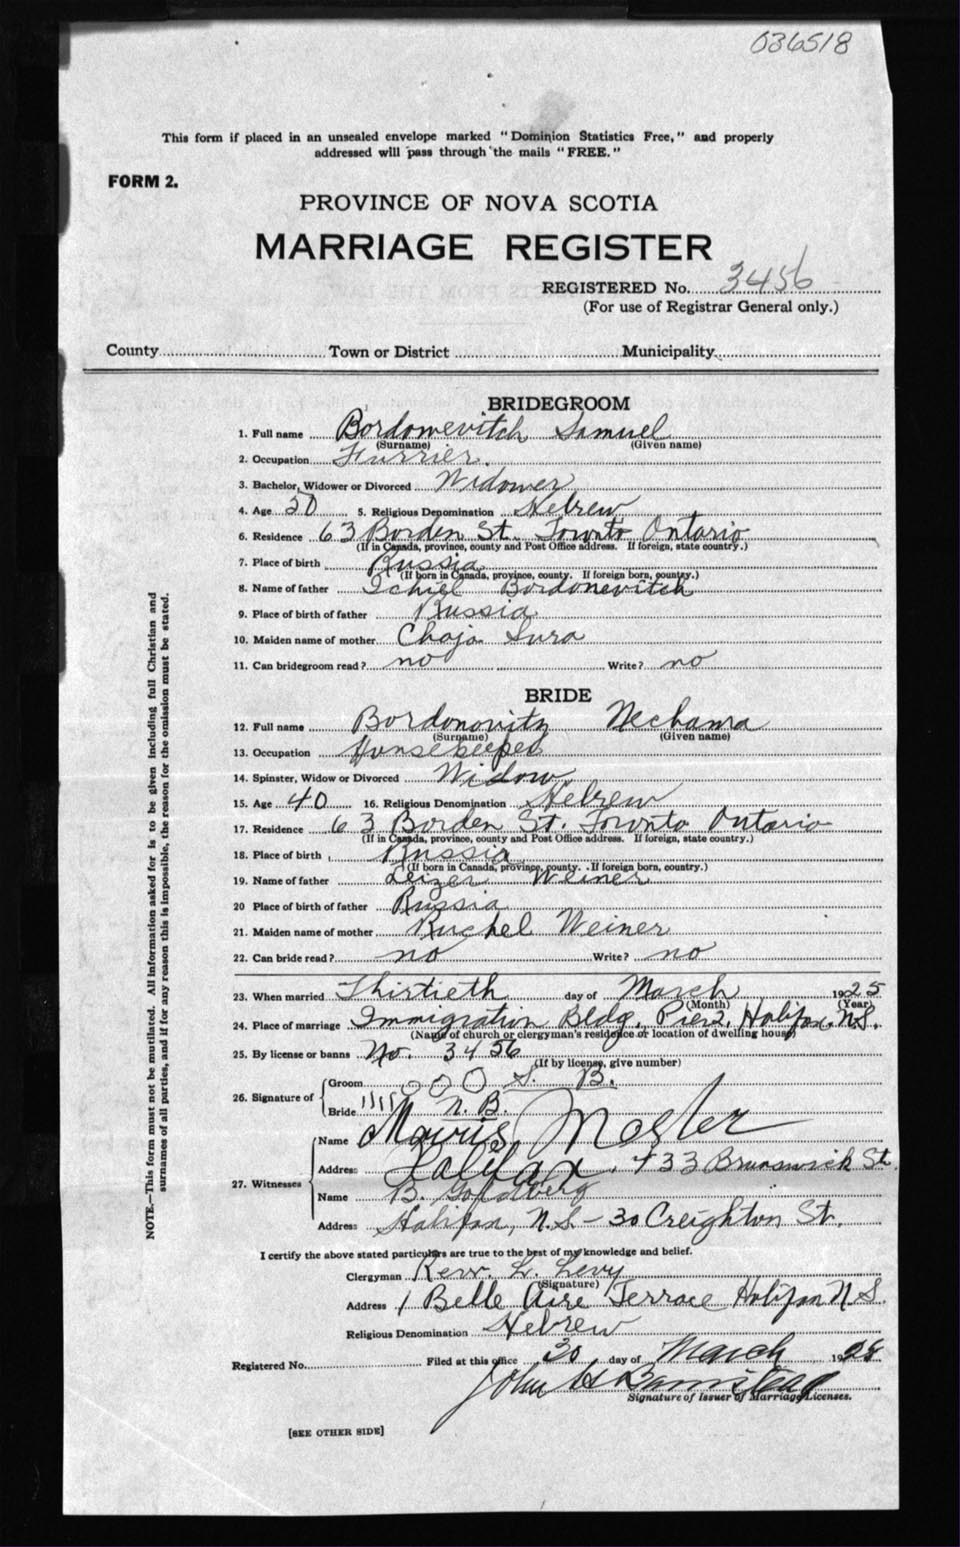 036518
This form if placed in an unsealed envelope marked "Dominion Statistics Free," and properly
addressed will pass through the mails "FREE."
FORM 2.
PROVINCE OF NOVA SCOTIA
MARRIAGE REGISTER
REGISTERED No. 3456
(For use of Registrar General only.)
County Town or District Municipality
BRIDEGROOM
1. Full name Bordonevitch Samuel
(Surname) (Given name)
2. Occupation Furrier.
3. Bachelor, Widower or Divorced Widower
4. Age 50 5. Religious Denomination Hebrew
6. Residence 63 Borden St. Toronto Ontario
(If in Canada, province, county and Post Office address. If foreign, state country.)
7. Place of birth Russia
(If born in Canada, province, county. If foreign born, country.)
8. Name of father Ichiel Bordonevitch
9. Place of birth of father Russia
10. Maiden name of mother Chaja Sura
11. Can bridegroom read? no Write? no
BRIDE
12. Full name Bordonovitz Nechama
(Surname) (Given name)
13. Occupation Housekeeper
14. Spinster, Widow or Divorced Widow
15. Age 40 16. Religious Denomination Hebrew
17. Residence 63 Borden St. Toronto Ontario
(If in Canada, province, county and Post Office address. If foreign, state country.)
18. Place of birth Russia
(If born in Canada, province, county. If foreign born, country.)
19. Name of father Leizer Weiner
20 Place of birth of father Russia
21. Maiden name of mother Ruchel Weiner
22. Can bride read? no Write? no
23. When married Thirtieth day of March 1925
(Month) (Year)
24. Place of marriage Immigration Bldg, Pier 2, Halifax. N.S.
(Name of church or clergyman's residence or location of dwelling house)
25. By license or banns No. 3456
(If by license, give number)
26. Signature of Groom OOO S. B.
Bride N. B.
27. Witnesses Name
Address Halifax, 433 Brunswick St.
Name B. Goldberg
Address Halifax, N.S - 30 Creighton St.
I certify the above stated particulars are true to the best of my knowledge and belief.
Clergyman Rev. L. Levy
(Signature)
Address 1 Belle Aire Terrace Halifax N.S.
Religious Denomination Hebrew
Registered No. Filed at this office 30 day of March 1928
John H Barnstead
Signature of Issuer of Marriage Licenses.
[SEE OTHER SIDE]
NOTE.—This form must not be mutilated. All information asked for is to be given including full Christian and
surnames of all parties, and if for any reason this is impossible, the reason for the omission must be stated.